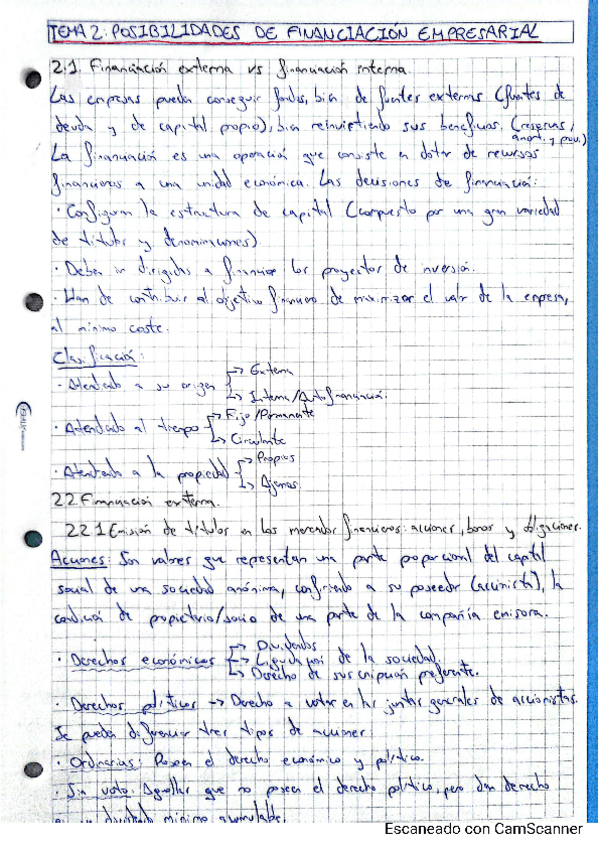 TEMA 2: POSIBILIDADES DE FINANCIACIÓN EMPRESARIAL
2.1. Financiación externa vs financiación interna.
Las empresas pueden conseguir fondos, bien de fuentes externas (fuentes de
deuda y de capital propio), bien reinvirtiendo sus beneficios. (reservas,
amort. y prov.)
La financiación es una operación que consiste en dotar de recursos
financieros a una unidad económica. Las decisiones de financiación:
· Configuran la estructura de capital (compuesto por una gran variedad
de títulos y denominaciones)
· Deben ir dirigidas a financiar los proyectos de inversión.
· Han de contribuir al objetivo financiero de maximizar el valor de la empresa,
al mínimo coste.
Clasificación:
· Atendiendo a su origen → Externa
↳ Interna/Autofinanciación.
· Atendiendo al tiempo → Fijo/Permanente
↳ Circulante
· Atendiendo a la propiedad → Propios
↳ Ajenos.
2.2 Financiación externa.
2.2.1 Emisión de títulos en los mercados financieros: acciones, bonos y obligaciones.
Acciones: Son valores que representan una parte proporcional del capital
social de una sociedad anónima, confiriendo a su poseedor (accionista), la
condición de propietario/socio de una parte de la compañía emisora.
· Derechos económicos → Dividendos
→ Liquidación de la sociedad.
↳ Derecho de suscripción preferente.
· Derechos políticos → Derecho a votar en las juntas generales de accionistas.
Se pueden diferenciar tres tipos de acciones:
· Ordinarias: Poseen el derecho económico y político.
· Sin voto: Aquellas que no poseen el derecho político, pero dan derecho
a un dividendo mínimo acumulable.
Escaneado con CamScanner